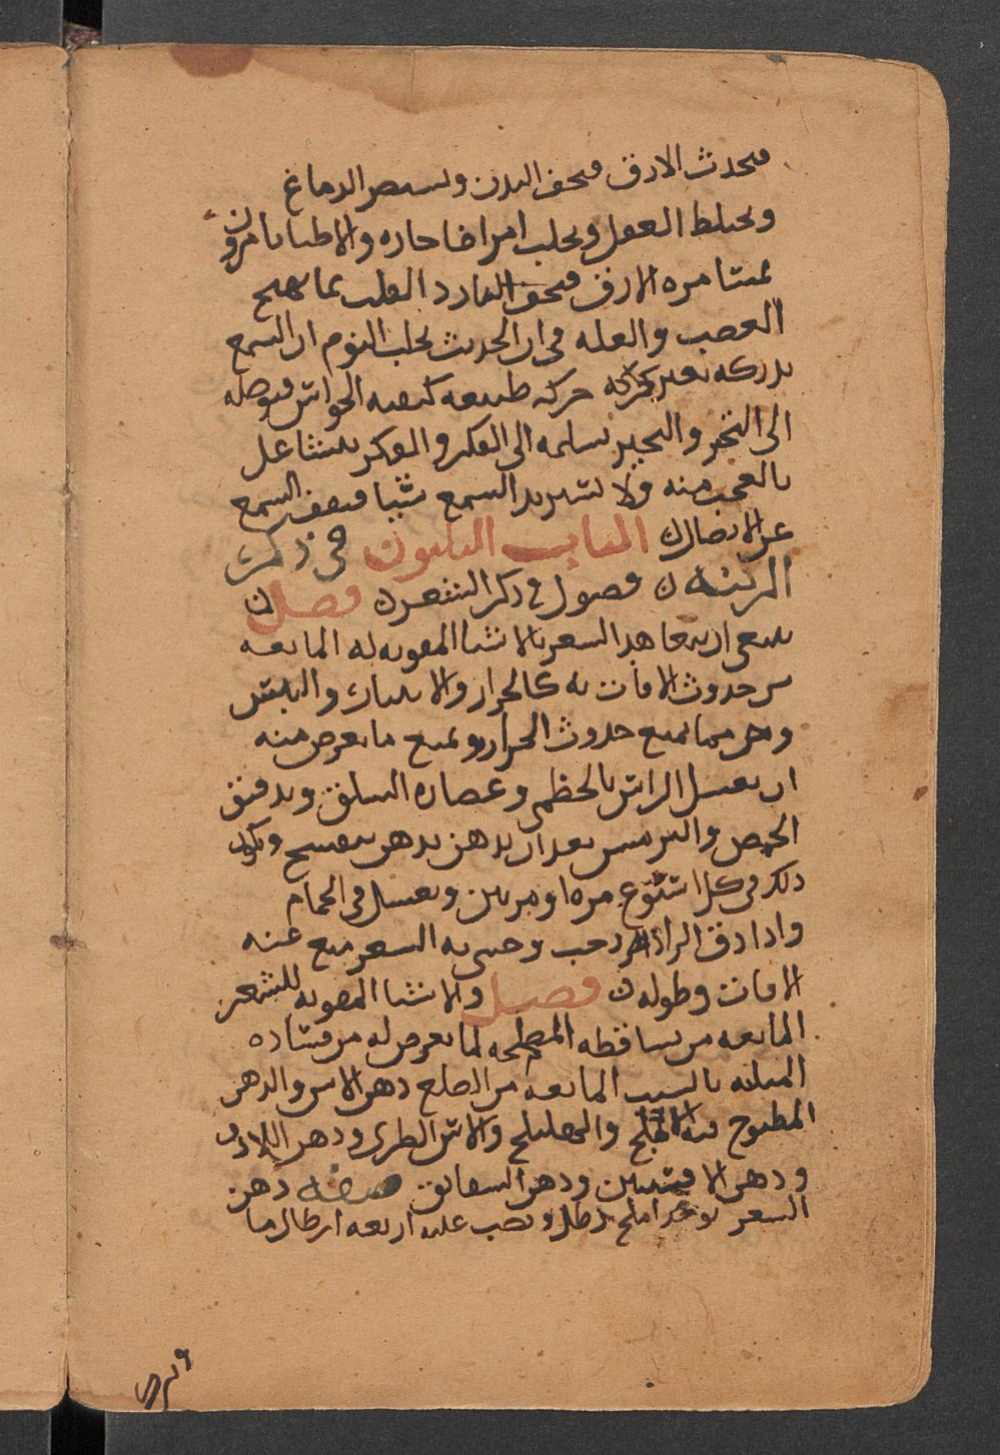 فيحدث الارق فيجف البدن وينتقص الدماغ
ويختلط العقل ويجلب امراضا حاده والاطبا يامرون
بمسامره الارق فيجف
العصب والعله في ان الحديث يجلب النوم ان السمع
يدركه بغير حركه طبيعه كبقيه الحواس فيوصله
الى التخير والتخير يسلمه الى الفكر والفكر يتشاغل
بالعجب منه ولا يستزيد السمع شيا فيقف السمع
عن الادراك الباب الثلثون في ذكر
الزينه فصول في ذكر الشعر فصل
ينبغي ان يتعاهد الشعر بالاشيا المقويه له المانعه
من حدوث الافات به كالحزاز والانتثار واليبس
ومن مما يمنع حدوث الحزاز ويمنع ما يعرض منه
ان يغسل الراس بالخطمي وعصاره السلق وبدقيق
الحمص والترمس بعد ان يدهن بدهن بنفسج ويكون
ذلك في كل اسبوع مره او مرتين ويغسل في الحمام
واذا دق وحشي به الشعر منع عنه
الافات وطوله فصل والاشيا المقويه للشعر
المانعه من تساقطه المصلحه لما يعرض له من فساده
المانعه من الصلع دهن الاس والدهن
المطبوخ فيه الاملج والهليلج والاس الطري ودهن اللاذن
ودهن الافسنتين ودهن الشقايق صفه دهن
الشعر يوخذ املج رطل ويصب عليه اربعه ارطال ما